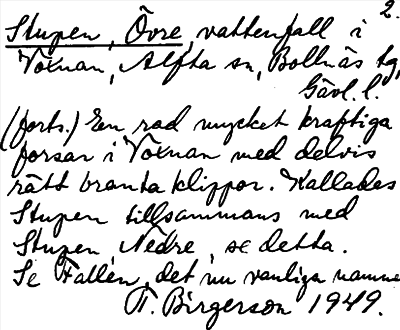 2.
Stupen, Övre, vattenfall i
Voxnan, Alfta sn, Bollnäs tg,
Gävl. l.
(forts.) En rad mycket kraftiga
forsar i Voxnan med delvis
rätt branta klippor. Kallades
Stupen tillsammans med
Stupen Nedre, se detta.
Se Fallén, det nu vanliga namnet
T. Birgerson 1949.